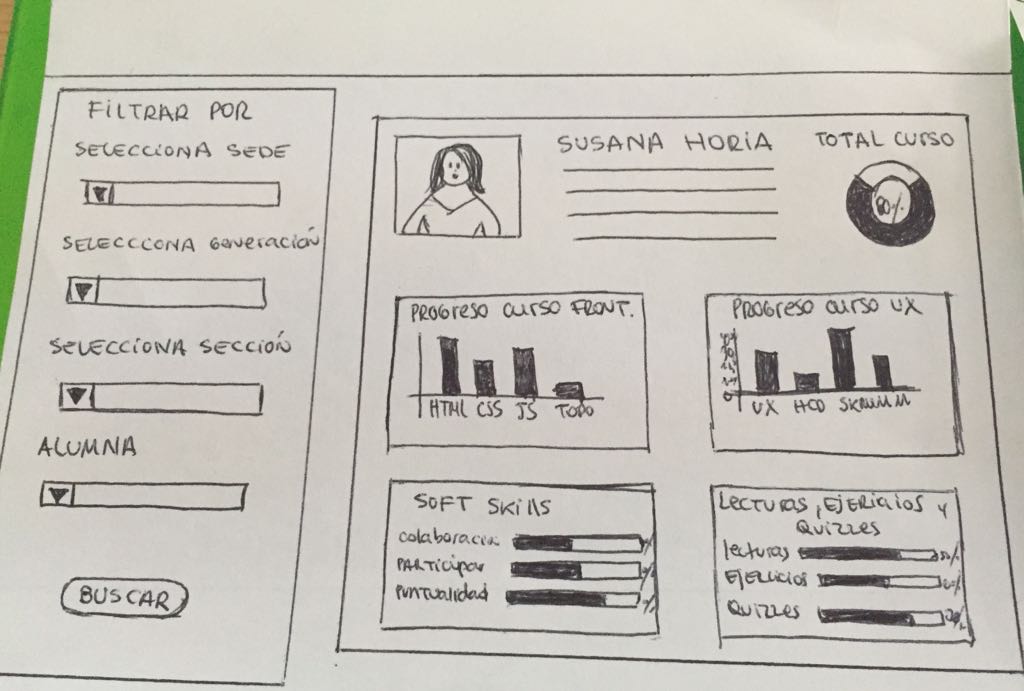 FILTRAR POR
SELECCIONA SEDE
SELECCCIONA GENERACIÓN
SELECCIONA SECCIÓN
ALUMNA
BUSCAR
SUSANA HORIA
TOTAL CURSO
80%
PROGRESO CURSO FRONT.
HTML CSS JS TODO
PROGRESO CURSO UX
0
UX HCD SKRUMM
SOFT SKILLS
COLABORACION
PARTICIPAR
PUNTUALIDAD
LECTURAS, EJERICIOS Y
QUIZZES
LECTURAS
EJERCICIOS
QUIZZES